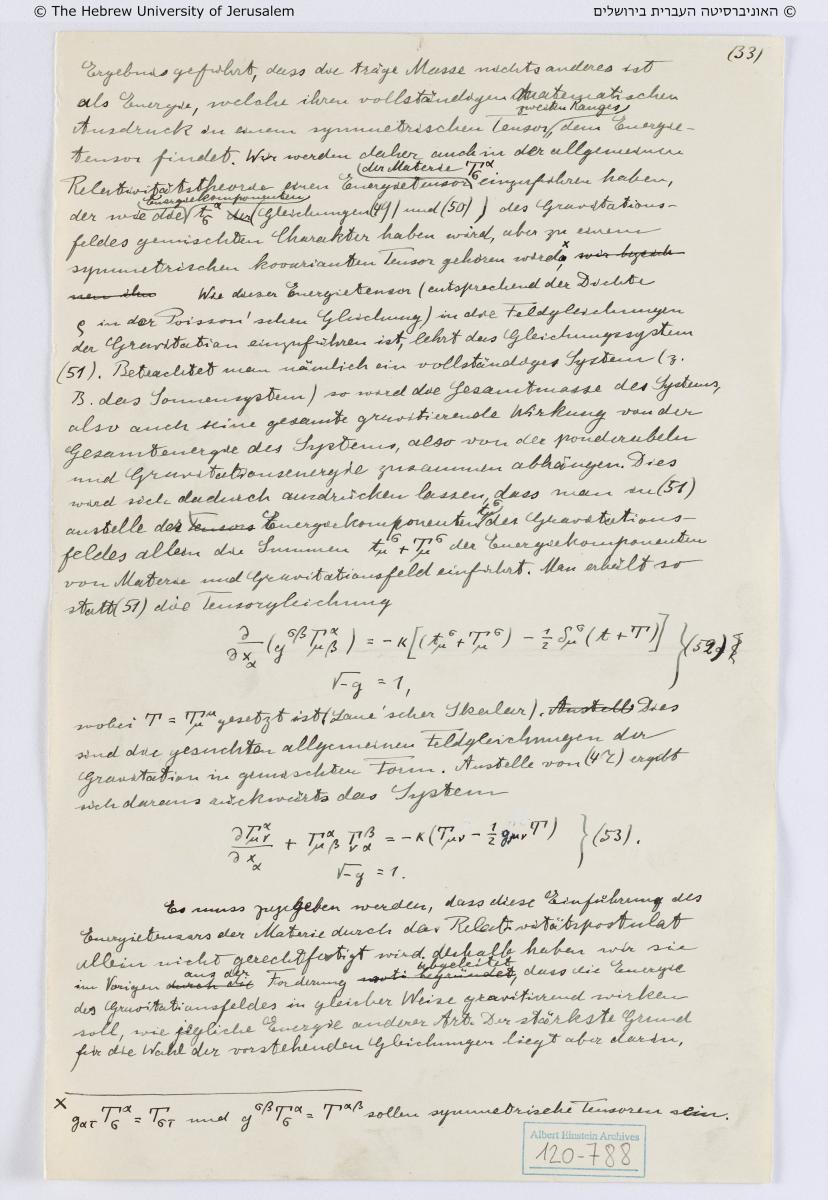 © The Hebrew University of Jerusalem
© האוניברסיטה העברית בירושלים
(33)
Ergebnis geführt, dass die träge Masse nichts anderes ist
als Energie, welche ihren vollständigen matematischen
zweiten Ranges
Ausdruck in einem symmetrischen Tensor, dem Energie-
tensor findet. Wir werden daher auch in der allgemeinen
der Materie T_σ^α
Relativitätstheorie einen Energietensor einzuführen haben,
Energiekomponenten
der wie die t_σ^α der (Gleichungen (49) und (50)) des Gravitations-
feldes gemischten Charakter haben wird, aber zu einem
symmetrischen kovarianten Tensor gehören wird x, wir bezeich
nen ihn Wie dieser Energietensor (entsprechend der Dichte
ϱ in der Poisson'schen Gleichung) in die Feldgleichungen
der Gravitation einzuführen ist, lehrt das Gleichungssystem
(51). Betrachtet man nämlich ein vollständiges System (z.
B. das Sonnensystem) so wird die Gesamtmasse des Systems,
also auch seine gesamte gravitierende Wirkung von der
Gesamtenergie des Systems, also von der ponderabeln
und Gravitationsenergie zusammen abhängen. Dies
wird sich dadurch ausdrücken lassen, dass man in (51)
anstelle der Tensors Energiekomponenten t_μ^σ des Gravitations-
feldes allein die Summen t_μ^σ + T_μ^σ der Energiekomponenten
von Materie und Gravitationsfeld einführt. Man erhält so
statt (51) die Tensorgleichung
∂/∂x_α (g^σβ Γ_μβ^α) = −κ[(t_μ^σ + T_μ^σ) − ½ δ_μ^σ (t + T)] } (52)
√−g = 1,
wobei T = T_μ^μ gesetzt ist (Laue'scher Skalar). Anstelle Dies
sind die gesuchten allgemeinen Feldgleichungen der
Gravitation in gemischter Form. Anstelle von (47) ergibt
sich daraus rückwärts das System
∂Γ_μν^α/∂x_α + Γ_μβ^α Γ_να^β = −κ(T_μν − ½ g_μν T) } (53).
√−g = 1.
Es muss zugegeben werden, dass diese Einführung des
Energietensors der Materie durch das Relativitätspostulat
allein nicht gerechtfertigt wird. deshalb haben wir sie
aus der abgeleitet
im Vorigen durch die Forderung begründet, dass die Energie
des Gravitationsfeldes in gleicher Weise gravitierend wirken
soll, wie jegliche Energie anderer Art. Der stärkste Grund
für die Wahl der vorstehenden Gleichungen liegt aber darin,
x g_ατ T_σ^α = T_στ und g^σβ T_σ^α = T^αβ sollen symmetrische Tensoren sein.
Albert Einstein Archives
120-788